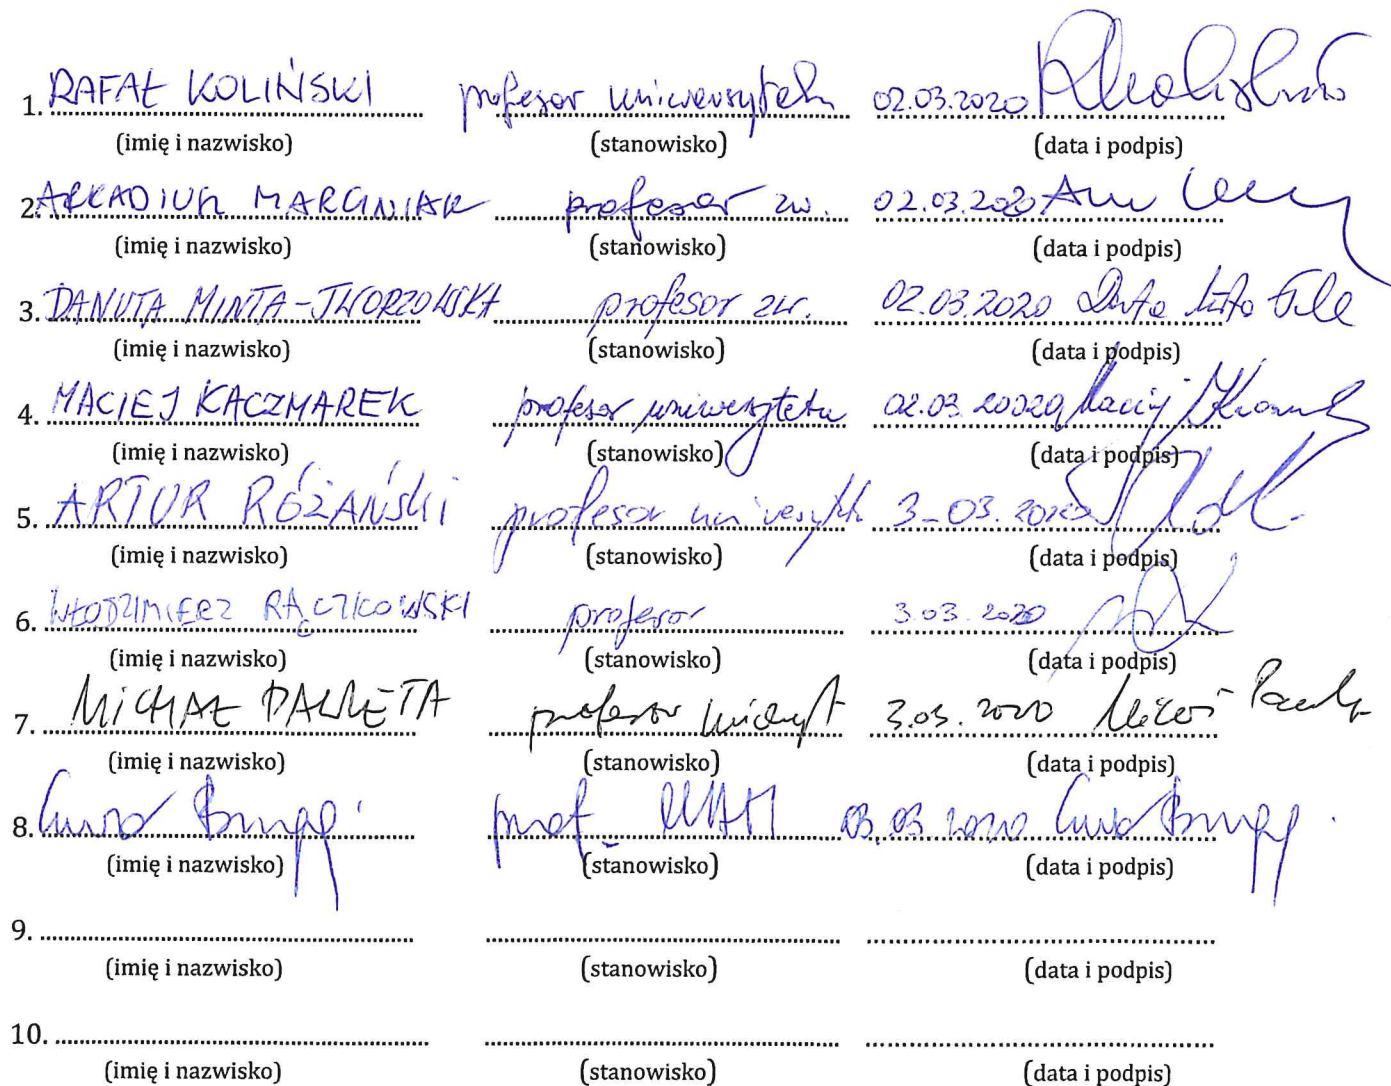 1. RAFAŁ KOLIŃSKI profesor uniwersytetu 02.03.2020
(imię i nazwisko) (stanowisko) (data i podpis)
2. ARKADIUSZ MARCINIAK profesor zw. 02.03.2020
(imię i nazwisko) (stanowisko) (data i podpis)
3. DANUTA MINTA-TWORZOWSKA profesor zw. 02.03.2020
(imię i nazwisko) (stanowisko) (data i podpis)
4. MACIEJ KACZMAREK profesor uniwersytetu 02.03.20020 Maciej
(imię i nazwisko) (stanowisko) (data i podpis)
5. ARTUR RÓŻAŃSKI profesor uniwersytetu 3-03.2020
(imię i nazwisko) (stanowisko) (data i podpis)
6. WŁODZIMIERZ RĄCZKOWSKI profesor 3.03.2020
(imię i nazwisko) (stanowisko) (data i podpis)
7. MICHAŁ PAWLETA profesor 3.03.2020
(imię i nazwisko) (stanowisko) (data i podpis)
8. prof. UAM 03.03.2020
(imię i nazwisko) (stanowisko) (data i podpis)
9.
(imię i nazwisko) (stanowisko) (data i podpis)
10.
(imię i nazwisko) (stanowisko) (data i podpis)